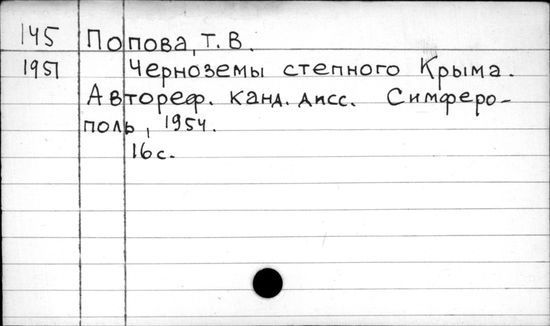 145 Попова, Т. В.
1951 Черноземы степного Крыма.
Автореф. канд. дисс. Симферо-
поль, 1954.
16 с.